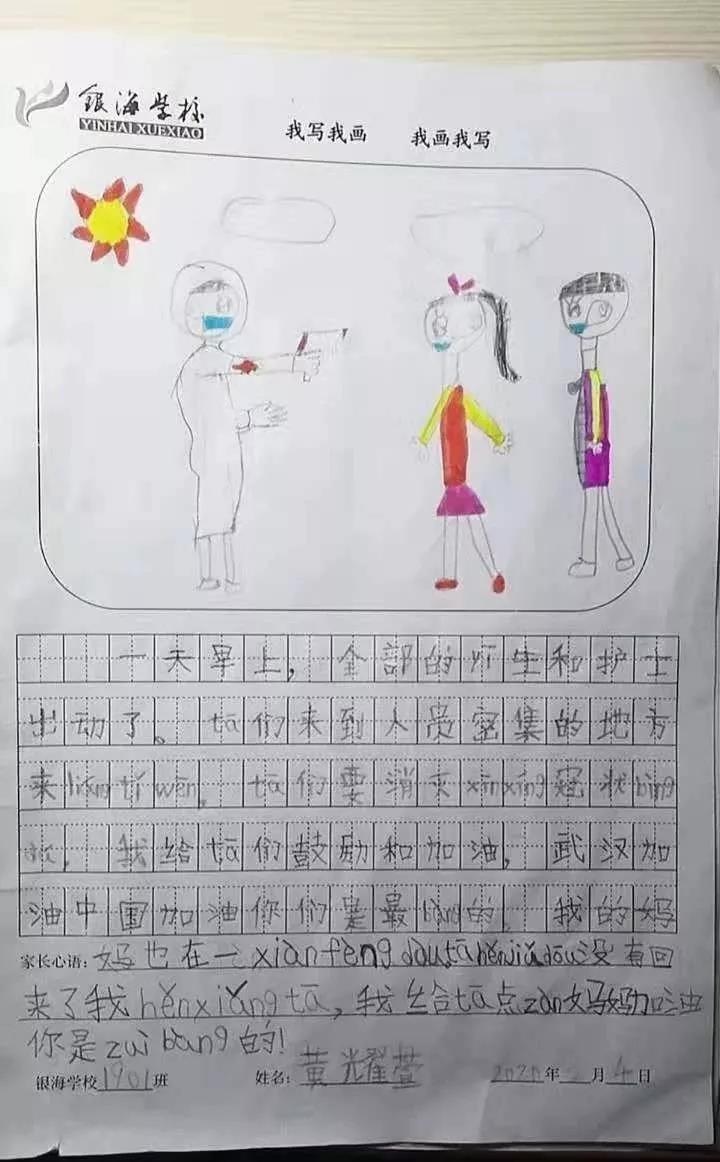 银海学校
YINHAI XUEXIAO
我写我画 我画我写
一天早上，全部的医生和护士
出动了。tā们来到人员密集的地方
来liánɡ tǐ wēn。tā们要消灭xīnxínɡ冠状bìnɡ
我给tā们鼓励和加油，武汉加
油中国加油你们是最bànɡ的。我的妈
家长心语：妈也在一xiàn fènɡ dòu tā hěnjiǔ dōu没有回
来了我hěn xiǎnɡ tā，我给tā点zàn妈妈加油
你是zuì bànɡ的！
银海学校1901班 姓名：黄耀萱 2020年 月4日